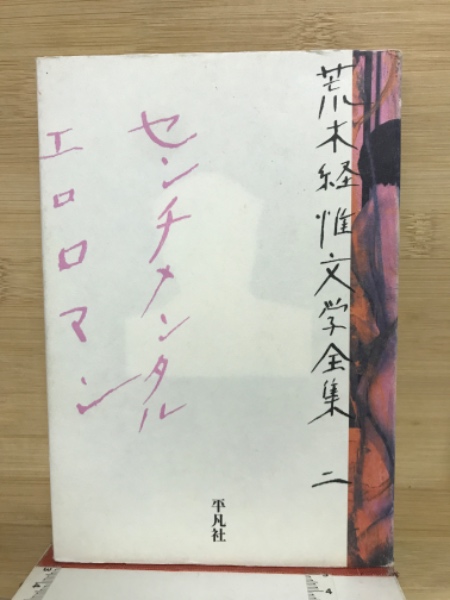 荒木経惟文学全集 二
センチメンタル
エロロマン
平凡社